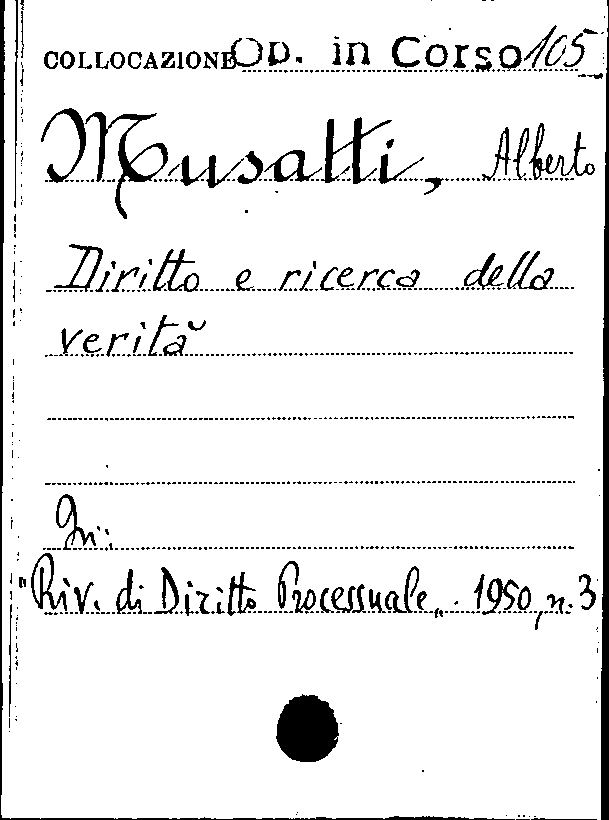 COLLOCAZIONE Op. in Corso 105
Musatti, Alberto
Diritto e ricerca della
verità
In:
"Riv. di Diritto Processuale„. 1950, n. 3